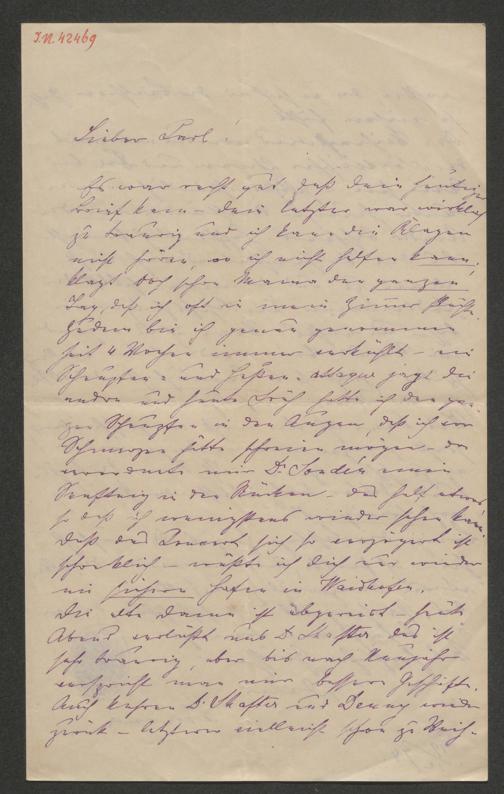 I.N. 42469
Lieber Carl
Es war recht gut daß dein heutiger
Brief kam – dein letzter war wirklich
zu traurig und ich kann das Klagen
nicht hören, wo ich nicht helfen kann,
klagt doch schon Mama den ganzen
Tag, daß ich oft in mein Zimmer flüchte.
Zudem bin ich genau genommen
seit 4 Wochen immer verkühlt – ein
Schnupfen und Husten jagt die
andre und heute früh hatte ich den
Schnupfen in den Augen, daß ich vor
Schmerzen hätte schreien mögen – da
verordnete mir Dr einen
Senfteig in den Rücken – das half etwas
so daß ich wenigstens wieder sehen kann.
Daß das Concert sich so verzögert ist
schrecklich – wüßte ich dich nur wieder
im sichern Hafen in Waidhofen.
Die alte Dame ist abgereist – heute
Abend verläßt uns Dr das ist
sehr traurig, aber bis nach Neujahr
verspricht man mir bessere Geschäfte.
Auch kehren Dr und wieder
zurück – letzterer vielleicht schon zu Weih-